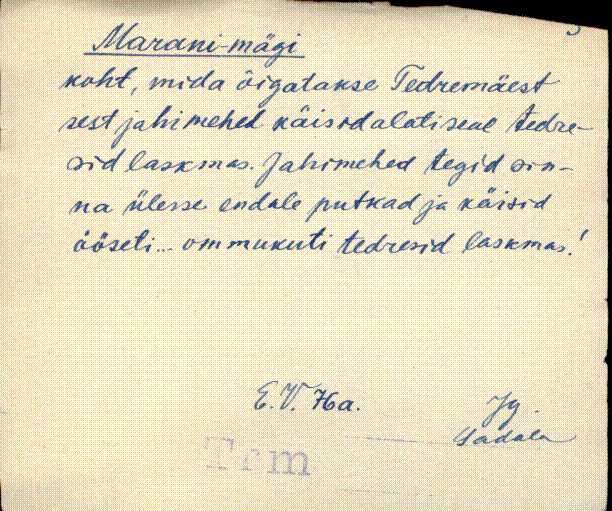 Marani-mägi
koht, mida õigatakse Tedremäest
sest jahimehed käisid alati seal tedre-
sid laskmas. Jahimehed tegid sin-
na ülesse endale putkad ja käisid
ööseti... ommukuti tedresid laskmas!
E.V. Ha.
Jg.
Sadala
Tom